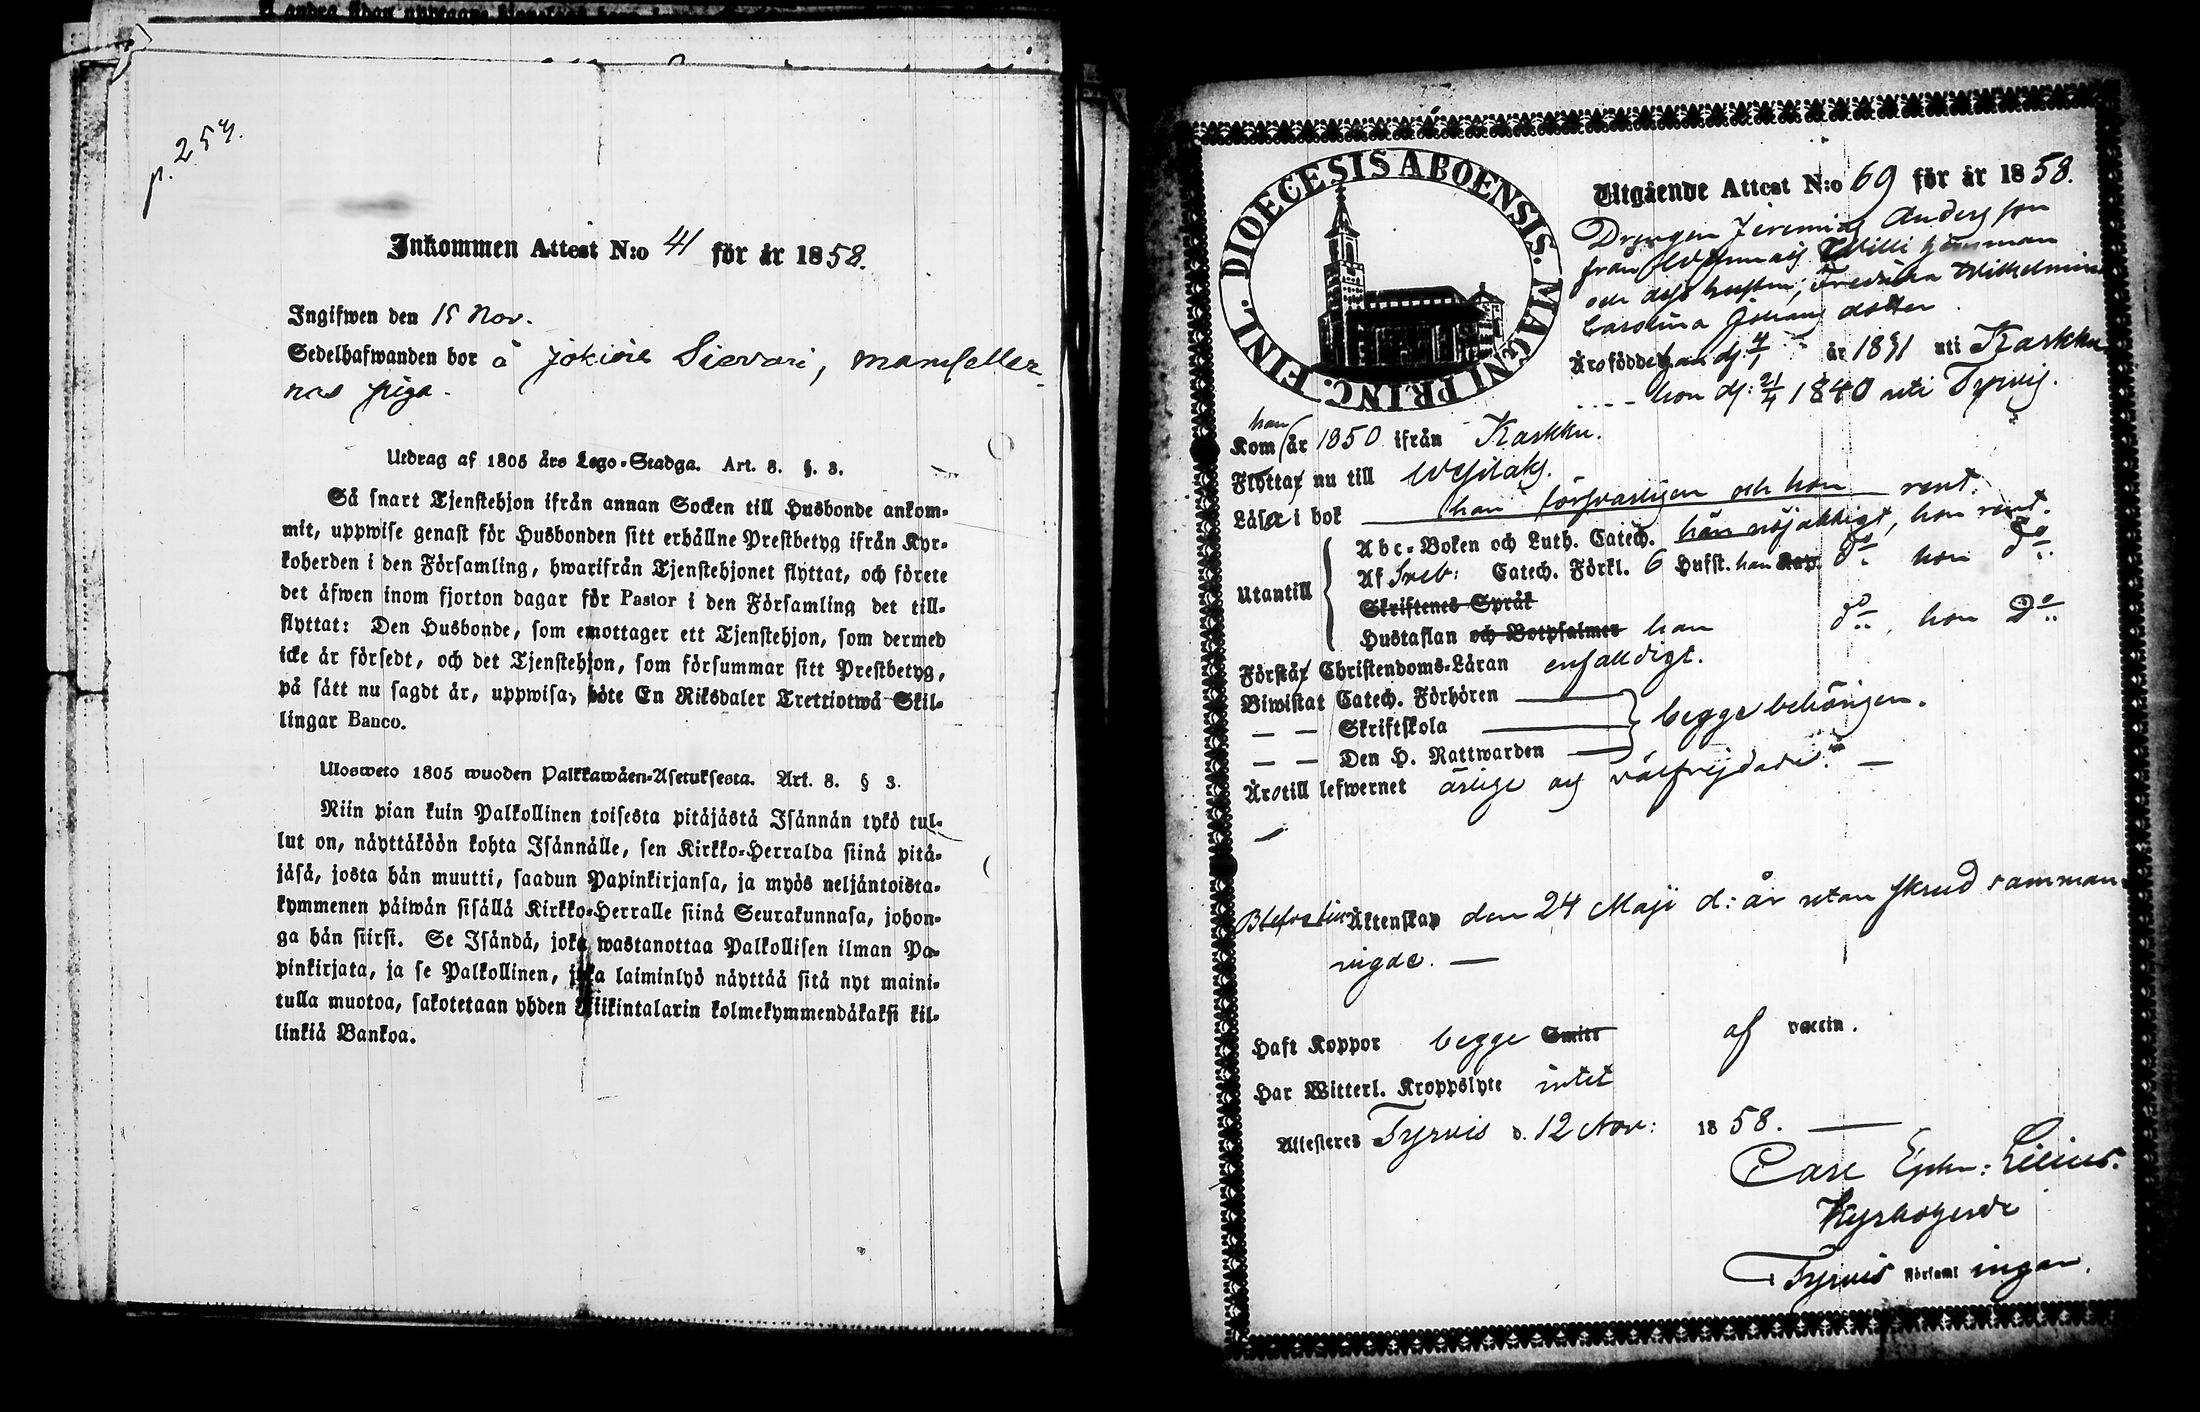 p. 254.
Inkommen Attest N:o 41 för år 1858.
Ingifwen den 15 Nov.
Sedelhafwanden bor å Jokisie Sievari, mamseller-
nas piga.
Utdrag af 1805 års Lego-Stadga. Art. 8. §. 3.
Så snart Tjenstehjon ifrån annan Socken till Husbonde ankom-
mit, uppwise genast för Husbonden sitt erhållne Prestbetyg ifrån Kyr-
koherden i den Församling, hwarifrån Tjenstehjonet flyttat, och förete
det äfwen inom fjorton dagar för Pastor i den Församling det till-
flyttat: Den Husbonde, som emottager ett Tjenstehjon, som dermed
icke är försedt, och det Tjenstehjon, som försummar sitt Prestbetyg,
på sätt nu sagdt är, uppwisa, böte En Riksdaler Trettiotwå Skil-
lingar Banco.
Ulosweto 1805 wuoden Palkkawäen-Asetuksesta. Art. 8. § 3.
Niin pian kuin Palkollinen toisesta pitäjästä Isännän tykö tul-
lut on, näyttäköön kohta Isännälle, sen Kirkko-Herralda siinä pitä-
jäsä, josta hän muutti, saadun Papinkirjansa, ja myös neljäntoista-
kymmenen päiwän sisällä Kirkko-Herralle siinä Seurakunnasa, johon-
ga hän siirsi. Se Isändä, joka wastanottaa Palkollisen ilman Pa-
pinkirjata, ja se Palkollinen, joka laiminlyö näyttää sitä nyt maini-
tulla muotoa, sakotetaan yhden Riikintalarin kolmekymmendäkaksi kil-
linkiä Bankoa.
DIOECESIS ABOENSIS. MAGNI PRINC. FINL.
Utgående Attest N:o 69 för år 1858.
Drengen Jeremias Andersson
från hemman
och dess hustru, Fredrika Wilhelmina
Carolina Johans dotter.
Äro födde han d: 4/ år 1831 uti Karkku
hon d: 21/4 1840 uti Tyrvis.
han
Kom år 1850 ifrån Karkku.
Flyttar nu till
Läsa i bok han försvarligen och hon rent.
Utantill
Abc-Boken och Luth. Catech. han nöjaktigt, hon rent.
Af Sveb: Catech. Förkl. 6 Hufst. han Kap. d:o hon d:o
Skriftenes Språk
Hustaflan och Botpsalmer han d:o, hon D:o
Förstår Christendoms-Läran enfalldigt.
Biwistat Catech. Förhören
— — Skriftskola begge behörigen.
— — Den H. Nattwarden
Äro till lefwernet ärlige och välfrejdade. —
Äktenskap den 24 Maji d: år utan skrud samman-
vigde. —
Haft Koppor begge Smitt af vaccin.
Har Witterl. Kroppslyte intet
Attesteres Tyrvis d. 12 Nov: 1858. —
Carl Ephr: Lilius.
Kyrkoherde
Tyrvis Församl ingar.